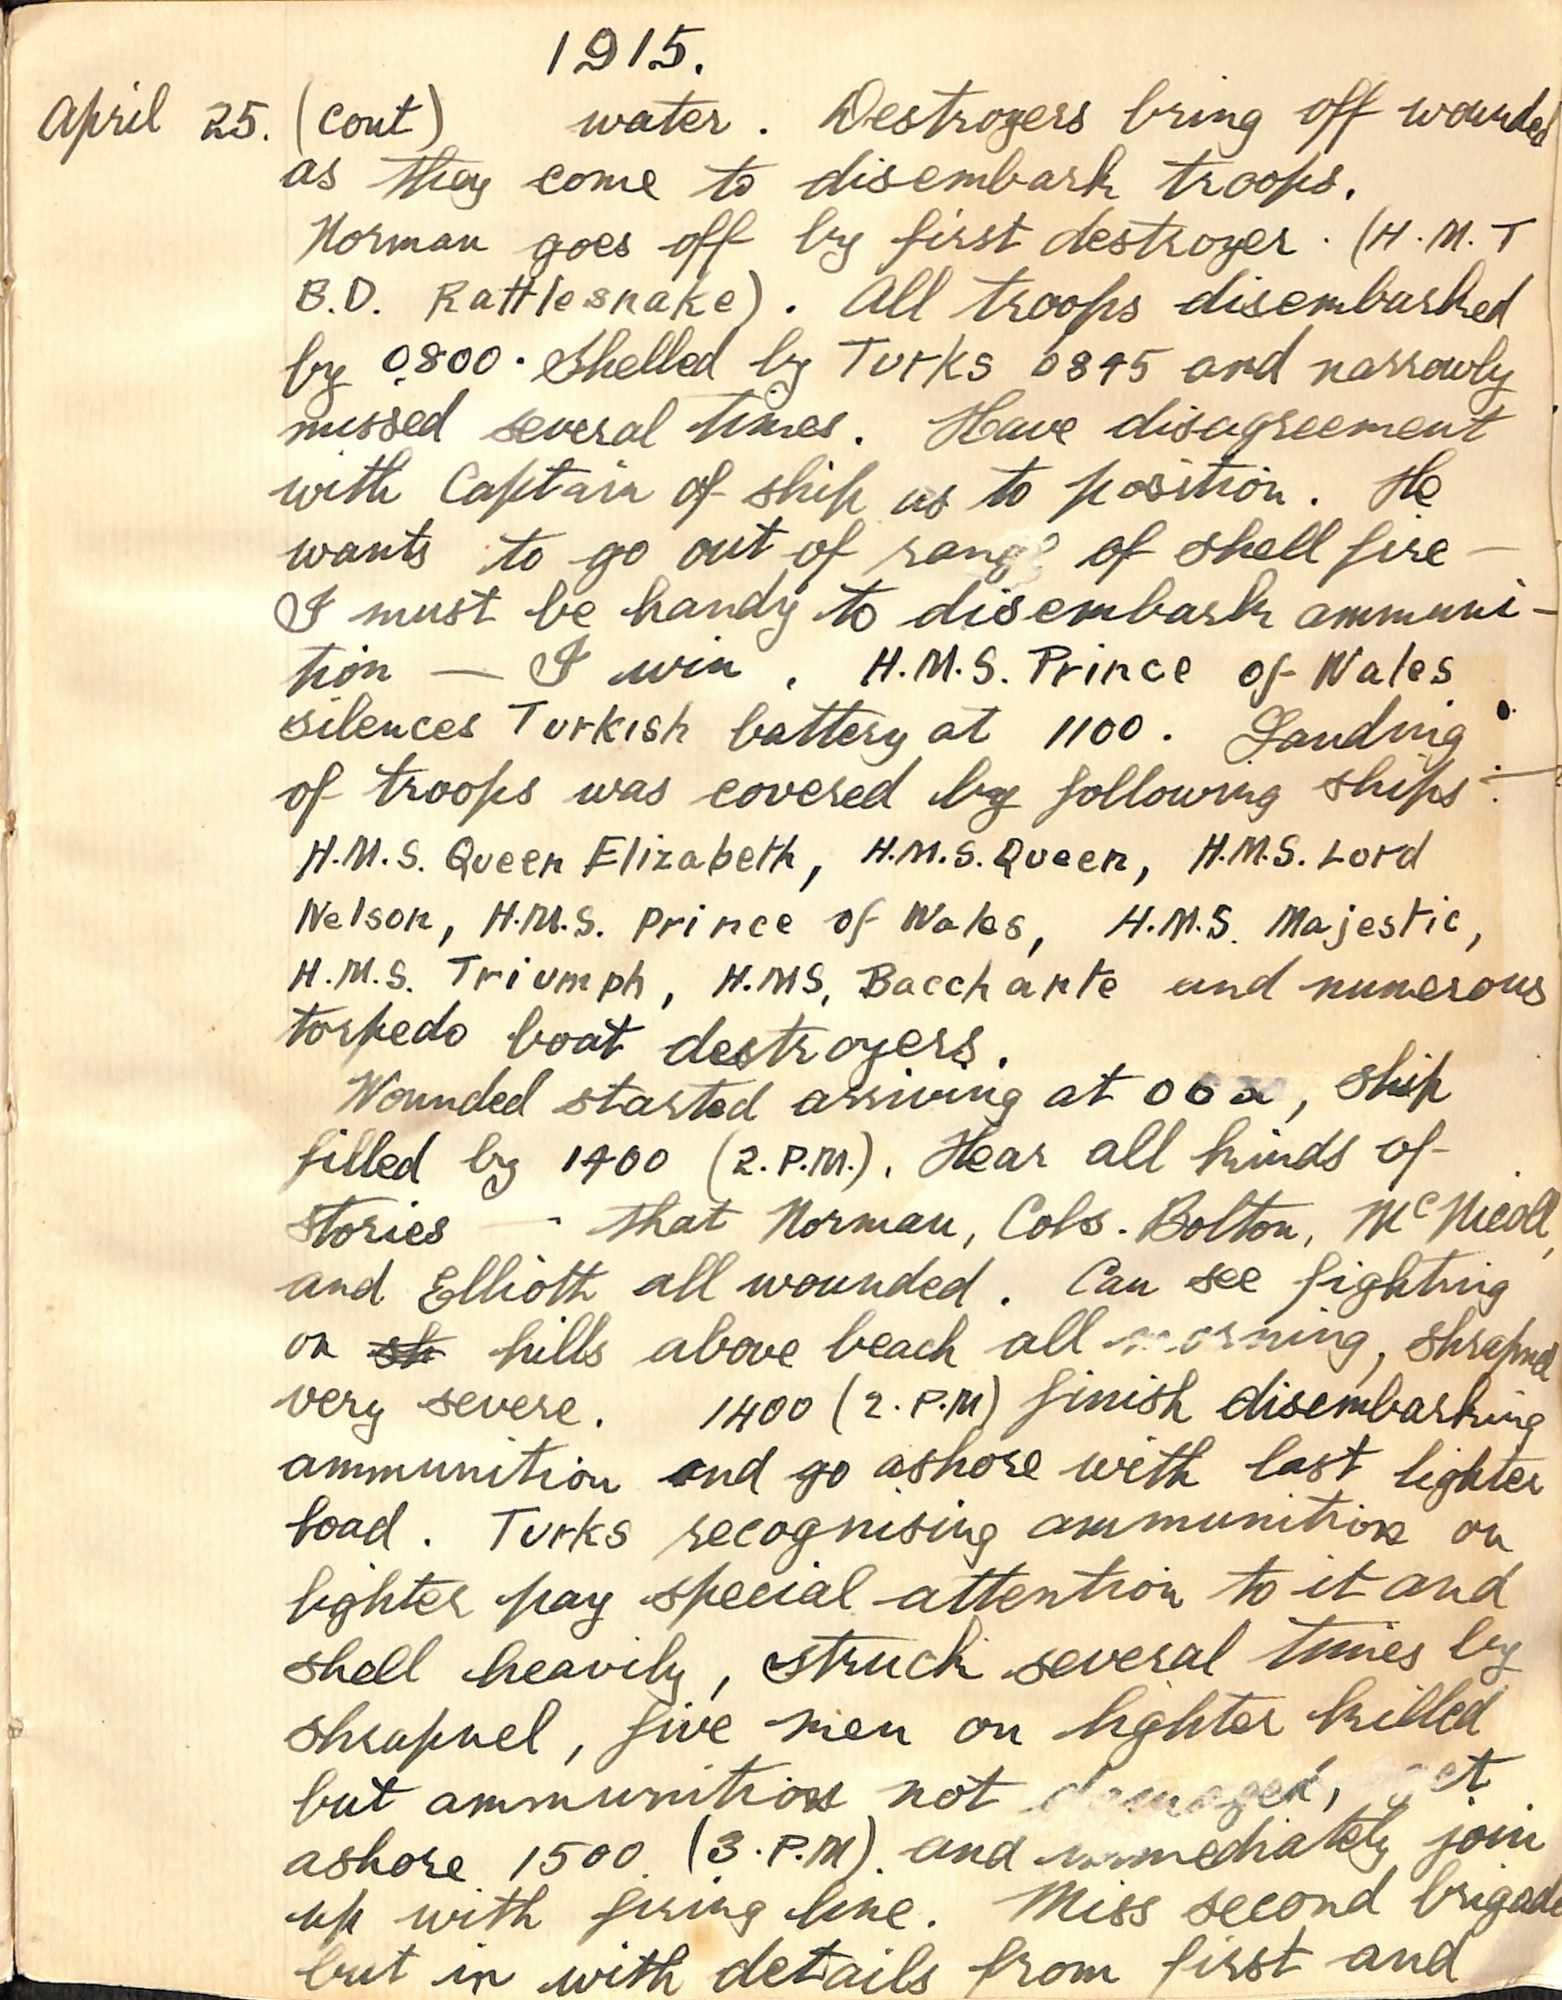 1915.
April 25. (cont) water. Destroyers bring off wounded
as they come to disembark troops.
Norman goes off by first destroyer. (H.M.T
B.D. Rattlesnake). All troops disembarked
by 0800. Shelled by Turks 0845 and narrowly
missed several times. Have disagreement
with Captain of ship as to position. He
wants to go out of range of shell fire —
I must be handy to disembark ammuni-
tion — I win. H.M.S. Prince of Wales
silences Turkish battery at 1100. Landing
of troops was covered by following ships :—
H.M.S. Queen Elizabeth, H.M.S. Queen, H.M.S. Lord
Nelson, H.M.S. Prince of Wales, H.M.S. Majestic,
H.M.S. Triumph, H.MS. Bacchante and numerous
torpedo boat destroyers.
Wounded started arriving at , ship
filled by 1400 (2.P.M.). Hear all kinds of
stories — that Norman, Cols. Bolton, McNicoll,
and Elliott all wounded. Can see fighting
on sh hills above beach all morning, shrapnel
very severe. 1400 (2.P.M) finish disembarking
ammunition and go ashore with last lighter
load. Turks recognising ammunition on
lighter pay special attention to it and
shell heavily, struck several times by
shrapnel, five men on lighter killed
but ammunition not damaged, get
ashore 1500 (3.P.M). and immediately join
up with firing line. Miss second brigade
but in with details from first and